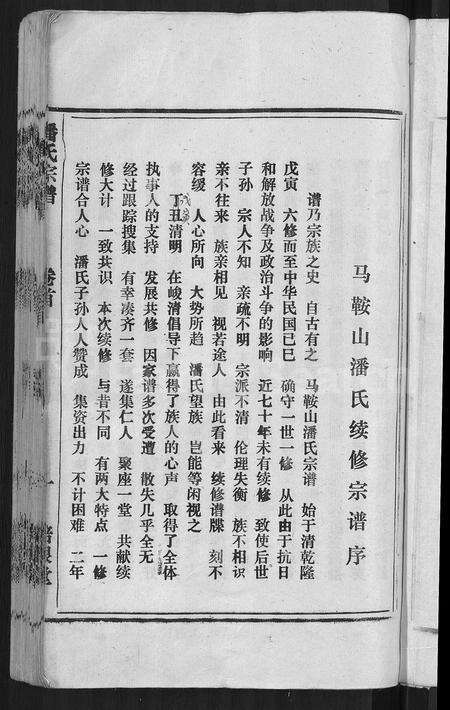 马鞍山潘氏续修宗谱序
谱乃宗族之史 自古有之 马鞍山潘氏宗谱 始于清乾隆
戊寅 六修而至中华民国己巳 确守一世一修 从此由于抗日
和解放战争及政治斗争的影响 近七十年未有续修 致使后世
子孙 宗人不知 亲疏不明 宗派不清 伦理失衡 族不相识
亲不往来 族亲相见 视若途人 由此看来 续修谱牒 刻不
容缓 人心所向 大势所趋 潘氏望族 岂能等闲视之
丁丑清明 在峻清倡导下赢得了族人的心声 取得了全体
执事人的支持 发展共修 因家谱多次受遭 散失几乎全无
经过跟踪搜集 有幸凑齐一套 遂集仁人 聚座一堂 共献续
修大计 一致共识 本次续修 与昔不同 有两大特点 一修
宗谱合人心 潘氏子孙人人赞成 集资出力 不计困难 二年
潘氏宗谱 卷首 一